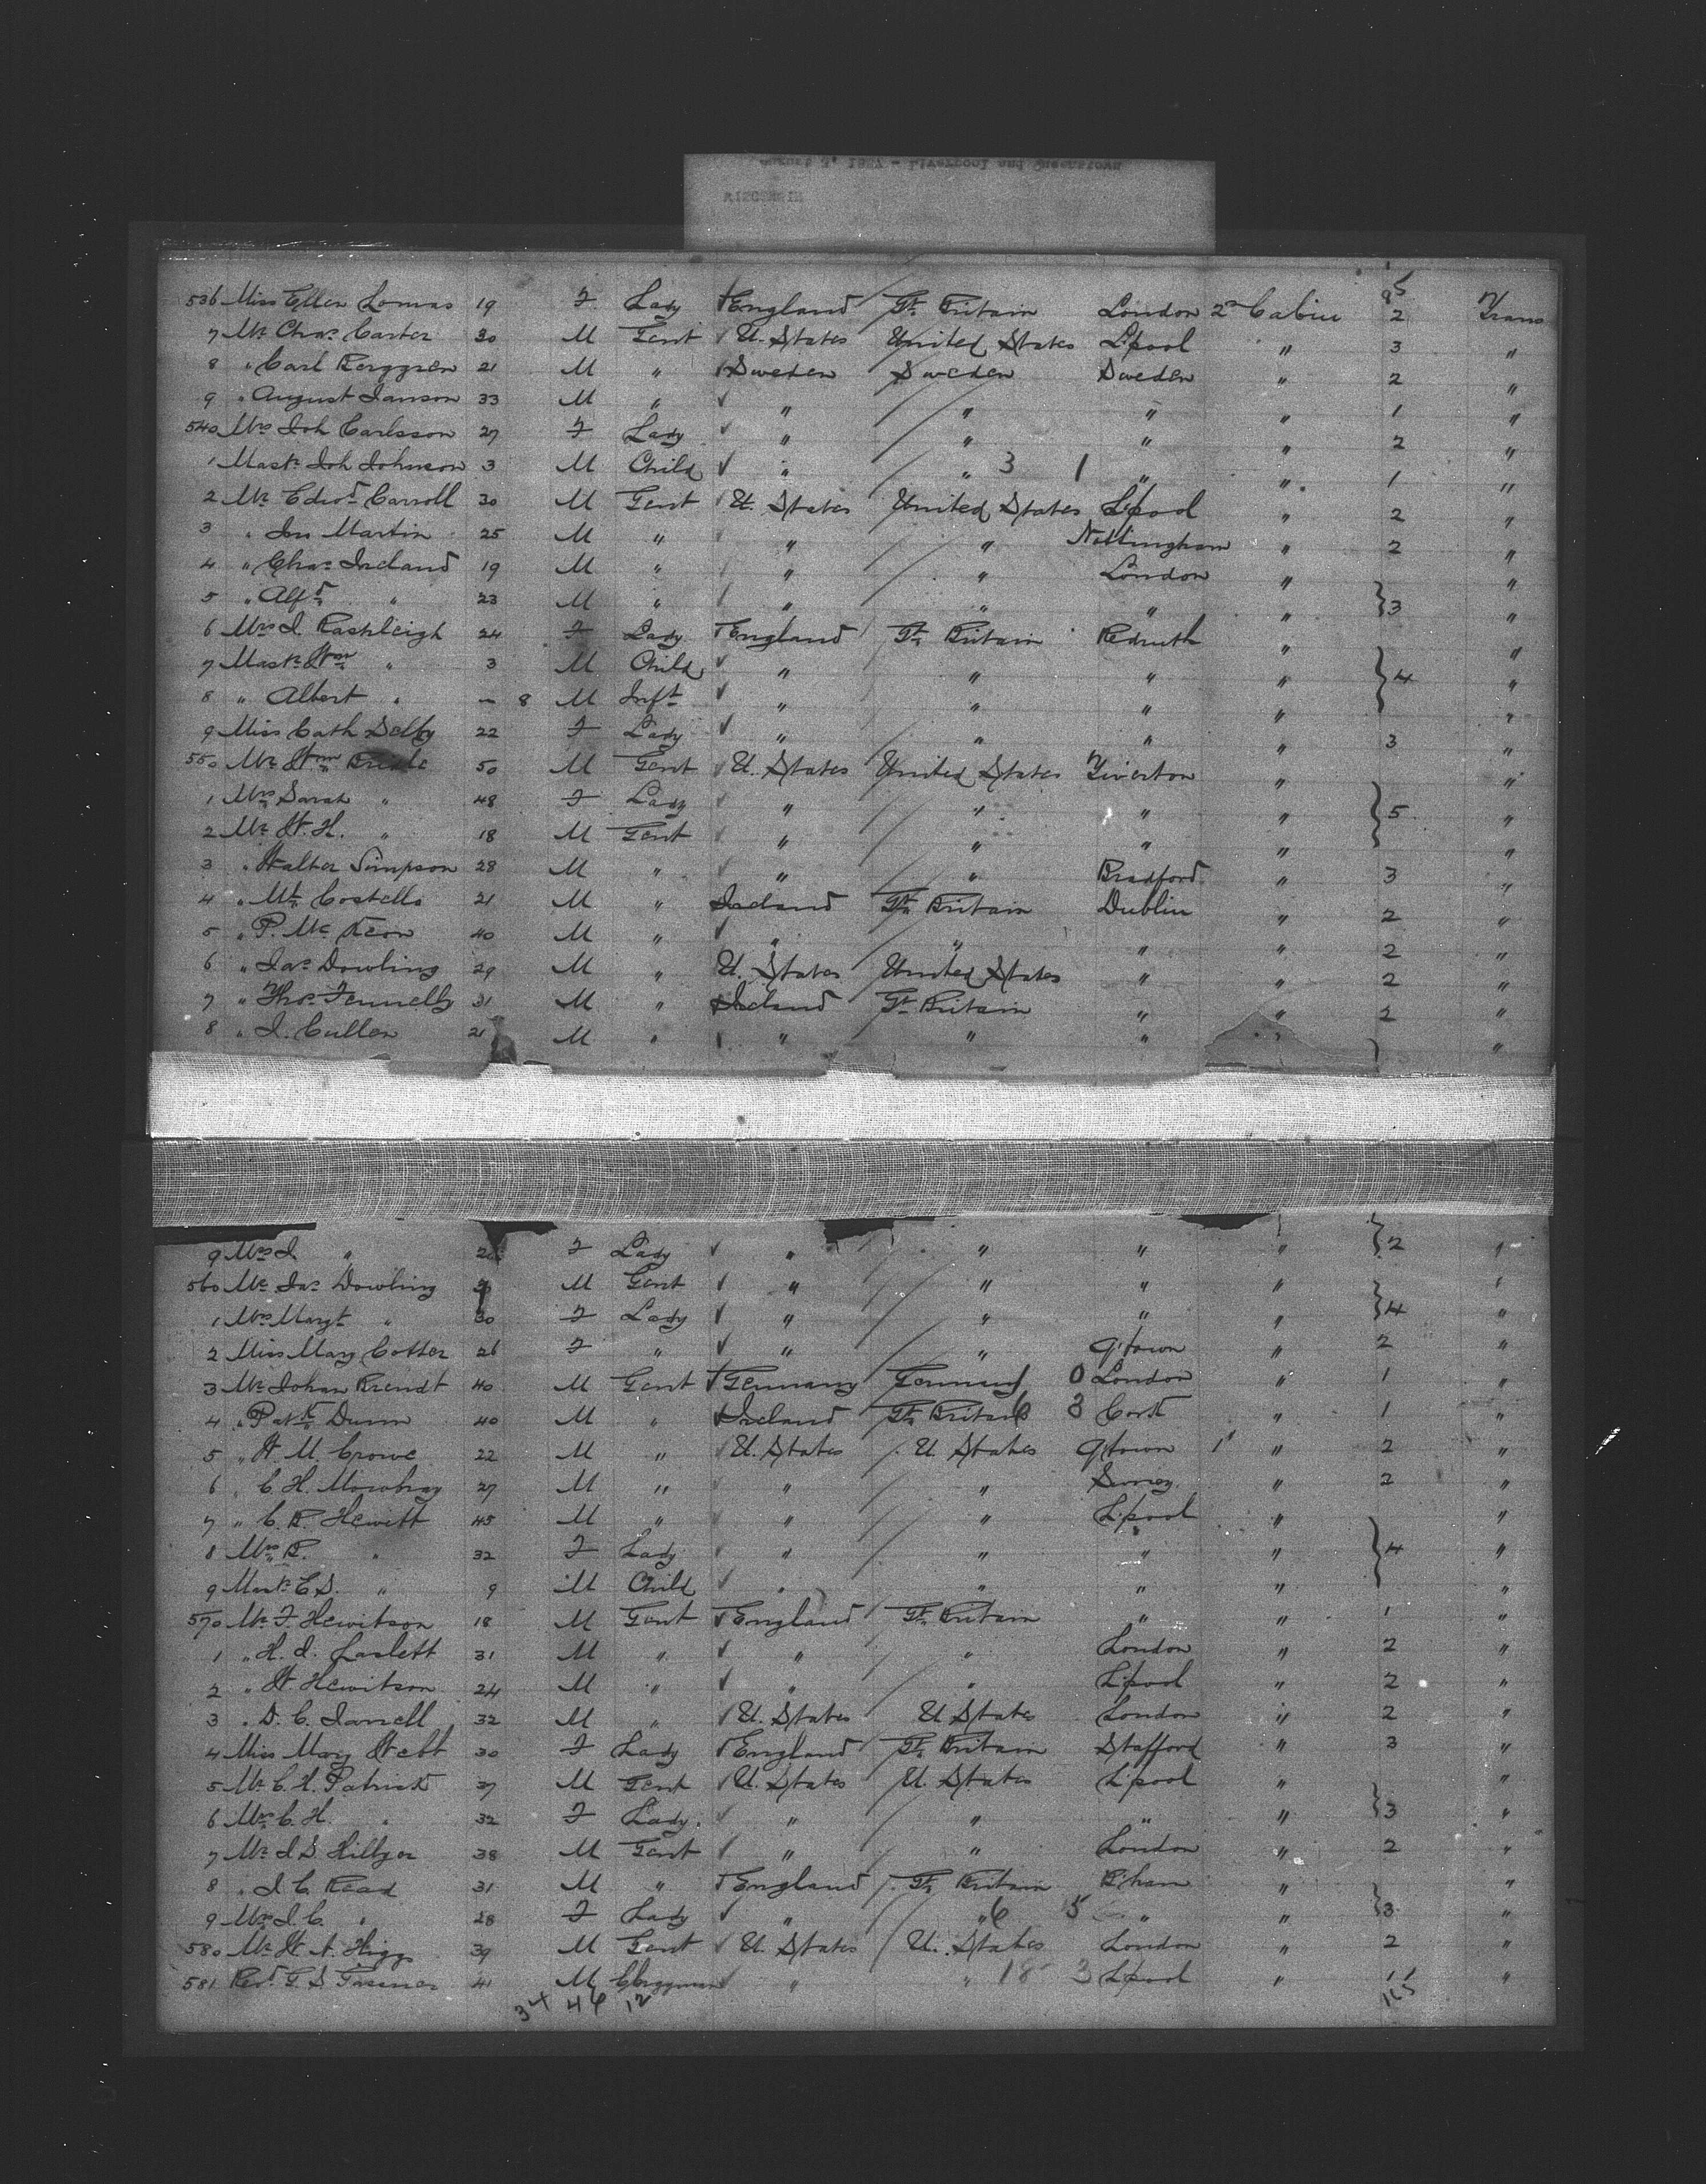 536 Miss Ellen Lomas 19 F Lady England Gt. Britain London 2nd Cabin 2 Trans
7 Mr Chas. Carter 30 M Gent U. States United States L'pool " 3 "
8 " Carl Berggren 21 M " Sweden Sweden Sweden " 2 "
9 " August Janson 33 M " " " " " 1 "
540 Mrs Joh Carlsson 27 F Lady " " " " 2 "
1 Mastr Joh Johnson 3 M Child " " 3 1 " " 1 "
2 Mr Edwd Carroll 30 M Gent U. States United States L'pool " 2 "
3 " Jno Martin 25 M " " " Nottingham " 2 "
4 " Chas Ireland 19 M " " " London " "
5 " Alfd " 23 M " " " " " 3 "
6 Mrs J. Rashleigh 24 F Lady England Gt. Britain Redruth " "
7 Mastr Wm " 3 M Child " " " " 4 "
8 " Albert " — 8 M Inft " " " " "
9 Miss Cath Selby 22 F Lady " " " " 3 "
550 Mr Wm 50 M Gent U. States United States Tiverton " "
1 Mrs Sarah " 48 F Lady " " " " 5 "
2 Mr W. H. " 18 M Gent " " " " "
3 " Walter Simpson 28 M " " " Bradford " 3 "
4 " Mt. Costello 21 M " Ireland Gt. Britain Dublin " 2 "
5 " P. Mc Keon 40 M " " " " " 2 "
6 " Jas Dowling 29 M " U. States United States " " 2 "
7 " Thos. Fennelly 31 M " Ireland Gt. Britain " " 2 "
8 " J. Cullen 21 M " " " " " "
9 Mrs J. " F Lady " " " " 2 "
560 Mr Jas Dowling M Gent " " " " "
1 Mrs Margt " 30 F Lady " " " 4 "
2 Miss Mary Cotter 26 F " " " Q'town " 2 "
3 Mr Johan Brendt 40 M Gent Germany Germany 0 London " 1 "
4 " Patk Dunn 40 M " Ireland Gt. Britain 3 Cork " 1 "
5 " W M Crowe 22 M " U. States U. States Q'town 1st " 2 "
6 " C. H. Mowbray 27 M " " " Surrey " 2 "
7 " C. R. Hewitt 45 M " " " L'pool " "
8 Mrs R. " 32 F Lady " " " " 4 "
9 Mastr C S. " 9 M Child " " " " "
570 Mr F. Hewitson 18 M Gent England Gt. Britain " " 1 "
1 " H. J. Laslett 31 M " " " London " 2 "
2 " W Hewitson 24 M " " " L'pool " 2 "
3 " D. C. 32 M " U. States U. States London " 2 "
4 Miss Mary Webb 30 F Lady England Gt. Britain Stafford " 3 "
5 Mr C. H. Patrick 37 M Gent U. States U. States L'pool " "
6 Mrs C. H. " 32 F Lady " " " " 3 "
7 Mr J S Hillyer 38 M Gent " " London " 2 "
8 " J. C. Read 31 M " England Gt. Britain B'ham " "
9 Mrs J. C. " 28 F Lady " " 6 5 " " 3 "
580 Mr W A. Higgs 39 M Gent U. States U. States London " 2 "
581 Revd G. S. 41 M Clergyman " " 18 3 L'pool " "
34 46 12